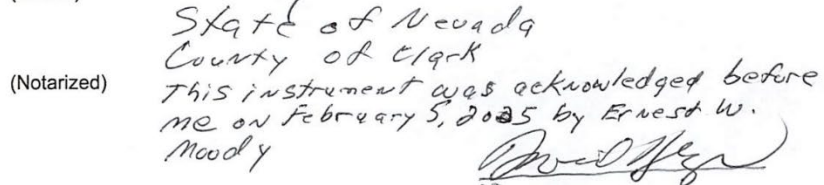 State of Nevada
County of Clark
(Notarized)
This instrument was acknowledged before
me on February 5, 2025 by Ernest W.
Moody